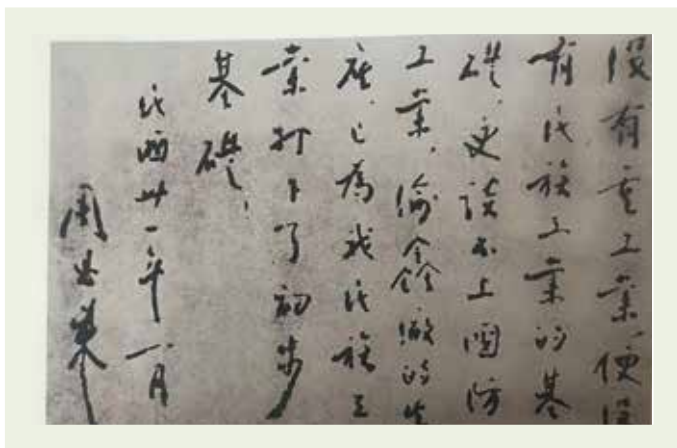 沒有重工業,便沒
有民族工業的基
礎,更談不上國防
工業,渝鑫廠的生
產,已為我民族工
業打下了初步
基礎.
民國卅一年一月
周恩來